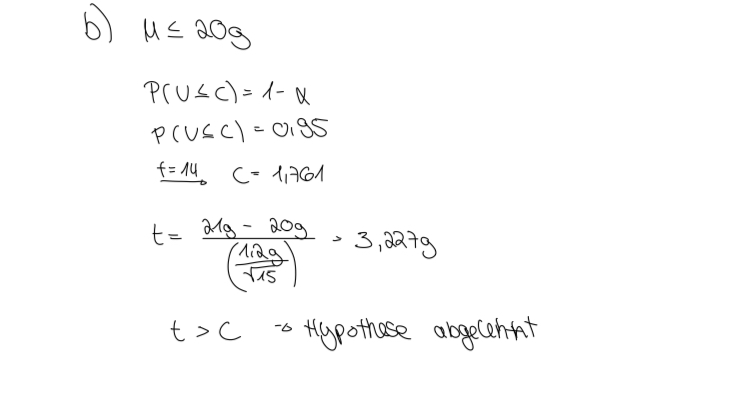 b) μ ≤ 20g
P(U ≤ C) = 1 - α
P(U ≤ C) = 0,95
f = 14 C = 1,761
t = (21g - 20g) / (1,2g / √15) = 3,227g
t > C → Hypothese abgelehnt